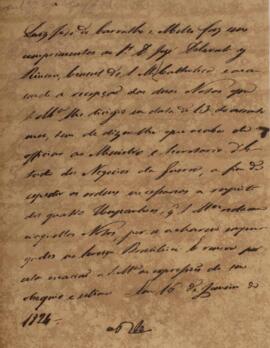 Luiz José de Carvalho e Mello faz seus
cumprimentos ao Sr. D. José Delavat y
Rincon, Consul de S. M. Catholica e accu-
sando a recepção das duas Notas que
S. Mce. lhe dirigio em data de 12 do corrente
mez, tem de dizer lhe que acaba de
officiar ao Ministro e Secretario d'Es-
tado dos Negocios da Guerra, a fim de
expedir as ordens necessarias a respeito
dos quatro Hespanhoes, q. S. Mce. reclama
naquellas Notas por se acharem
no Serviço Brasileiro
a S. Mce. as expressões de seu
obsequio e estima. Em 16 de Janeiro de
1824.